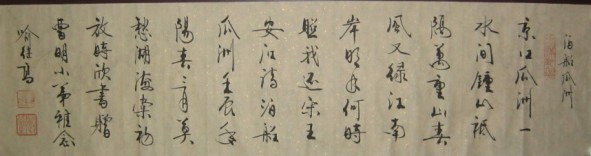 泊船瓜洲
京口瓜洲一
水间鍾山祗
隔萬重山春
風又绿江南
岸明月何时
照我还宋王
安石诗泊船
瓜洲壬辰年
陽春三月莫
愁湖海棠初
放時欣書贈
曹明小弟雅念
喻继高